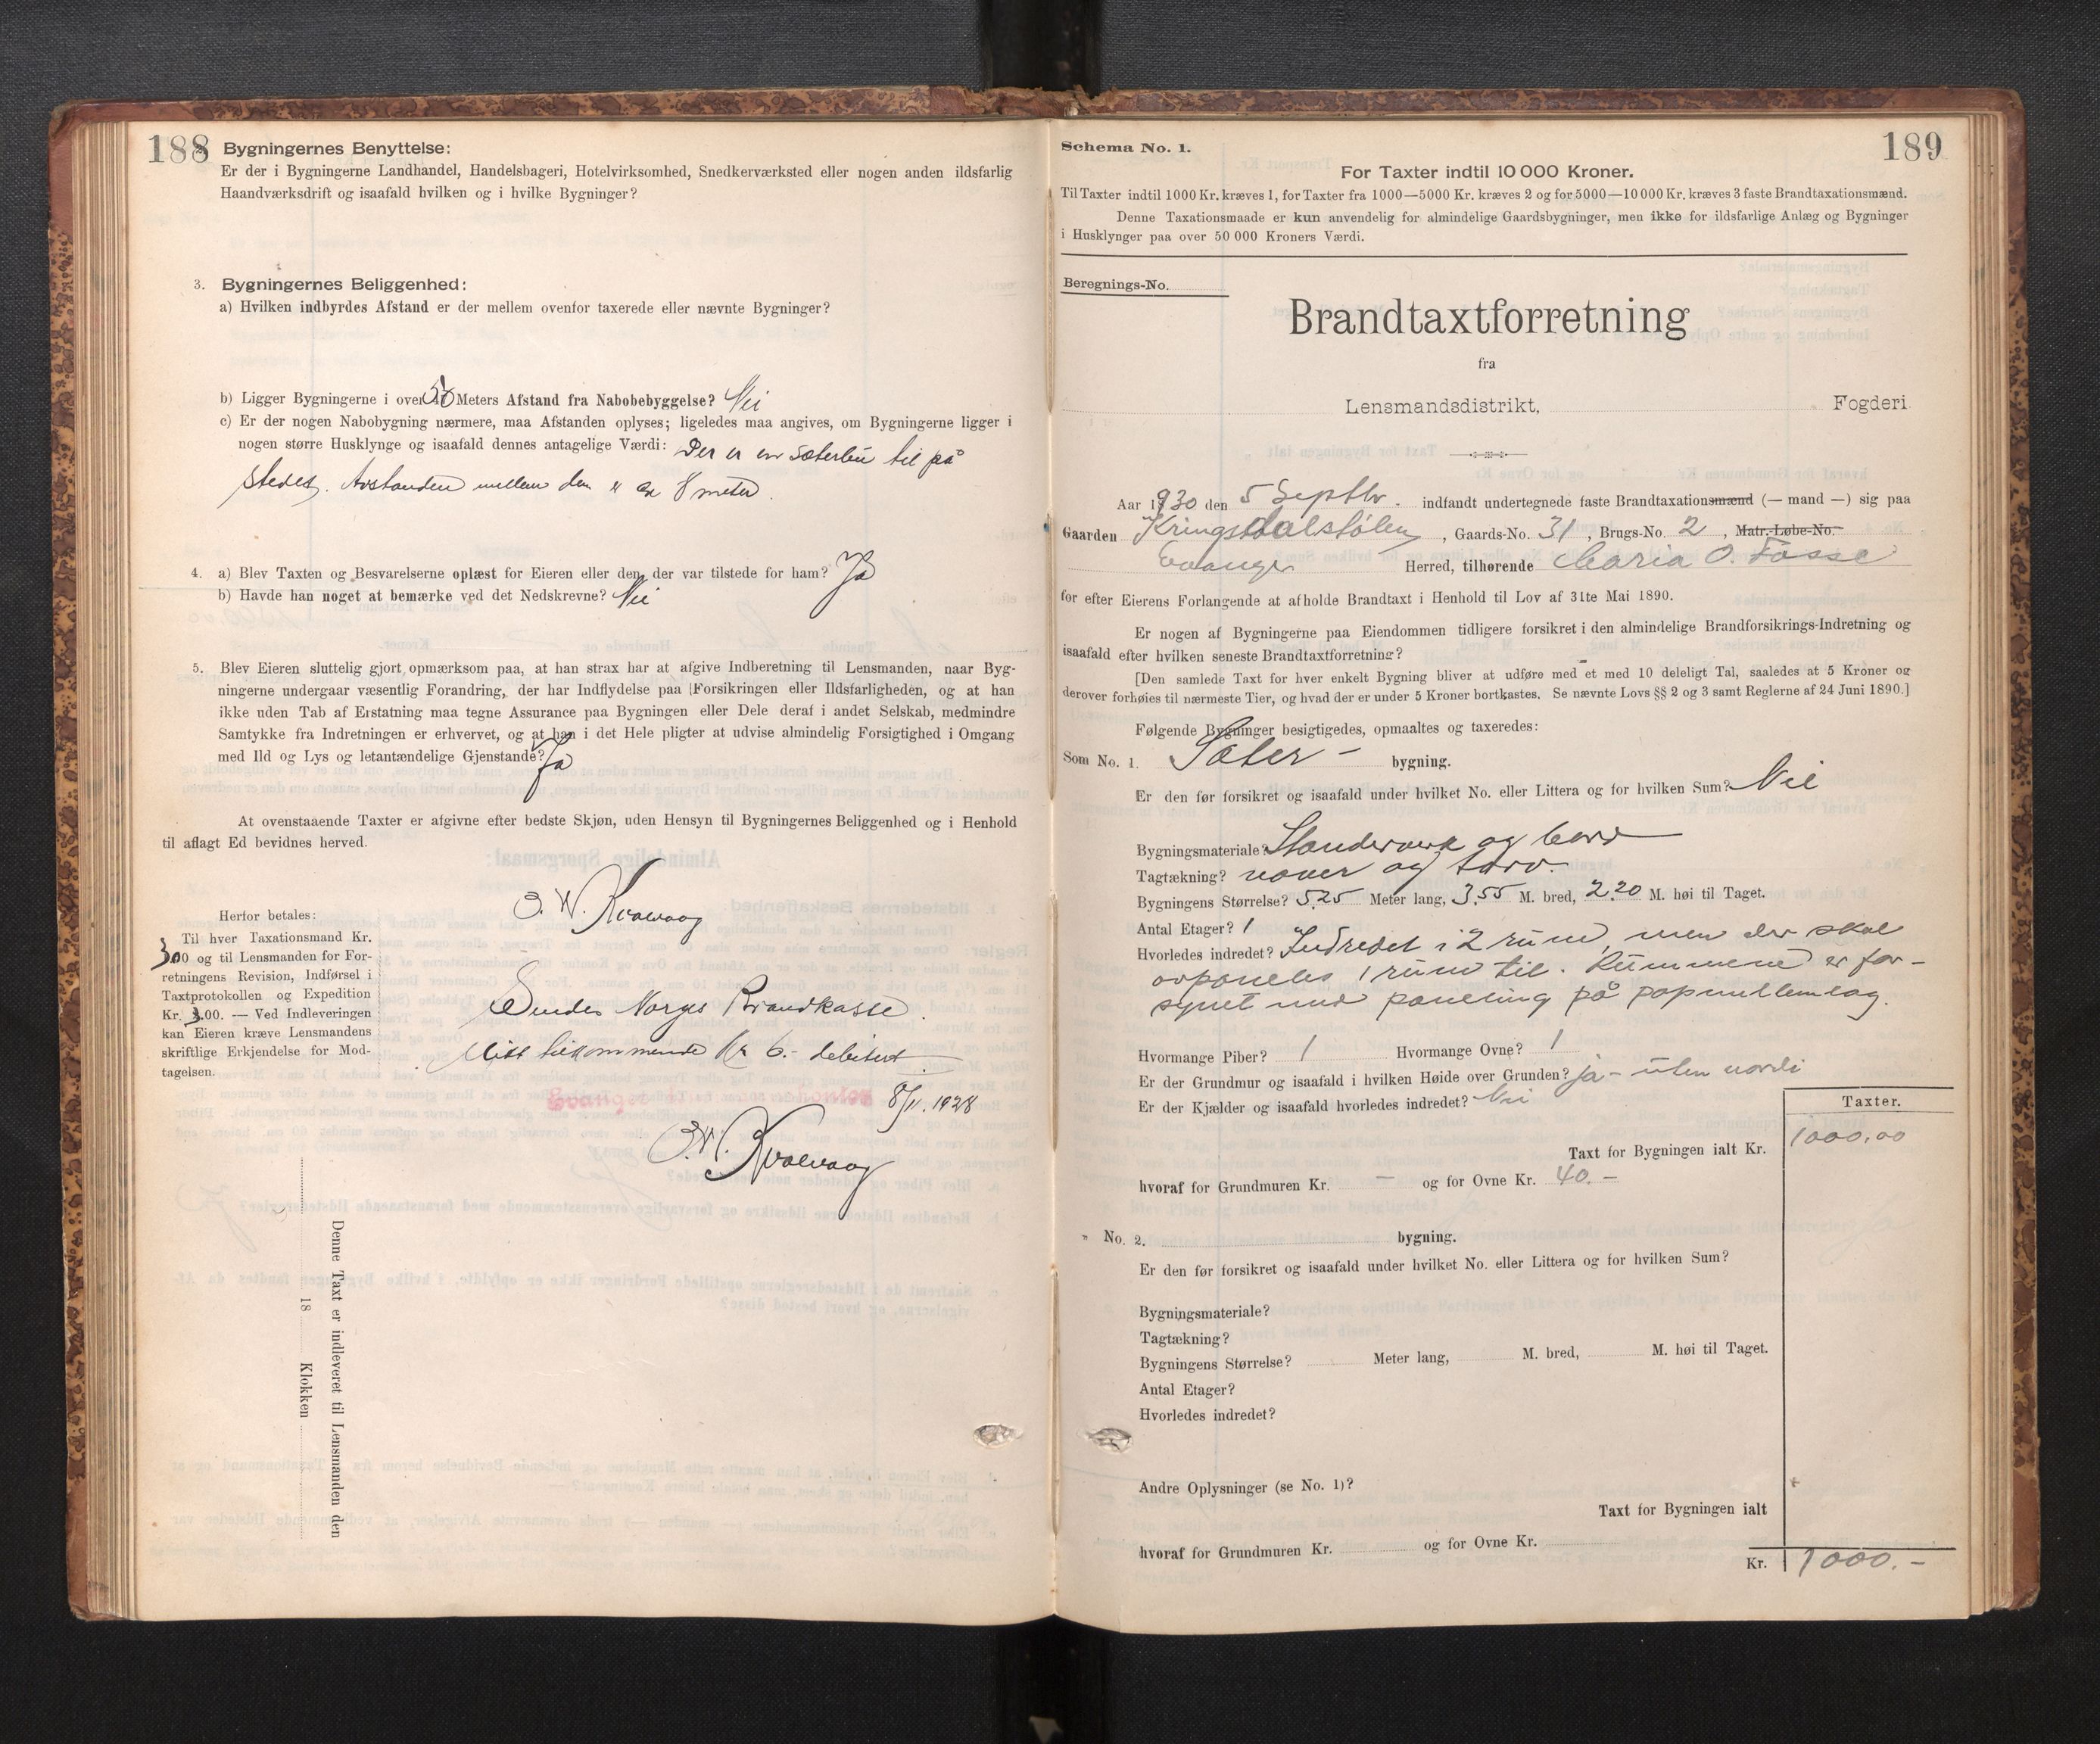 188
2. Bygningernes Benyttelse:
Er der i Bygningerne Landhandel, Handelsbageri, Hotelvirksomhed, Snedkerværksted eller nogen anden ildsfarlig
Haandværksdrift og isaafald hvilken og i hvilke Bygninger?
3. Bygningernes Beliggenhed:
a) Hvilken indbyrdes Afstand er der mellem ovenfor taxerede eller nævnte Bygninger?
b) Ligger Bygningerne i over 50 Meters Afstand fra Nabobebyggelse? Nei
c) Er der nogen Nabobygning nærmere, maa Afstanden oplyses; ligeledes maa angives, om Bygningerne ligger i
nogen større Husklynge og isaafald dennes antagelige Værdi: Der er en sæterbu til på
stedet. Avstanden mellem dem er ca 8 meter.
4. a) Blev Taxten og Besvarelserne oplæst for Eieren eller den, der var tilstede for ham? Ja
b) Havde han noget at bemærke ved det Nedskrevne? Nei
5. Blev Eieren sluttelig gjort opmærksom paa, at han strax har at afgive Indberetning til Lensmanden, naar Byg-
ningerne undergaar væsentlig Forandring, der har Indflydelse paa Forsikringen eller Ildsfarligheden, og at han
ikke uden Tab af Erstatning maa tegne Assurance paa Bygningen eller Dele deraf i andet Selskab, medmindre
Samtykke fra Indretningen er erhvervet, og at han i det Hele pligter at udvise almindelig Forsigtighed i Omgang
med Ild og Lys og letantændelige Gjenstande? Ja
At ovenstaaende Taxter er afgivne efter bedste Skjøn, uden Hensyn til Bygningernes Beliggenhed og i Henhold
til aflagt Ed bevidnes herved.
O. W. Kvalvaag
Herfor betales:
Til hver Taxationsmand Kr.
3.00 og til Lensmanden for For-
retningens Revision, Indførsel i
Taxtprotokollen og Expedition
Kr. 3.00. — Ved Indleveringen
kan Eieren kræve Lensmandens
skriftlige Erkjendelse for Mod-
tagelsen.
Sendes Norges Brandkasse.
Mitt tilkommende Kr 6.- debitert.
Evanger lensmannskontor 8/11. 1928
O.W. Kvalvaag
Denne Taxt er indleveret til Lensmanden den
18 Klokken
189
Schema No. 1.
For Taxter indtil 10 000 Kroner.
Til Taxter indtil 1000 Kr. kræves 1, for Taxter fra 1000—5000 Kr. kræves 2 og for 5000—10 000 Kr. kræves 3 faste Brandtaxationsmænd.
Denne Taxationsmaade er kun anvendelig for almindelige Gaardsbygninger, men ikke for ildsfarlige Anlæg og Bygninger
i Husklynger paa over 50 000 Kroners Værdi.
Beregnings-No.
Brandtaxtforretning
fra
Lensmandsdistrikt, Fogderi
Aar 1930 den 5 Septbr. indfandt undertegnede faste Brandtaxationsmænd (— mand —) sig paa
Gaarden Kringsdalstølen, Gaards-No. 31, Brugs-No. 2, Matr.-Løbe-No.
Evanger Herred, tilhørende Maria O. Fosse
for efter Eierens Forlangende at afholde Brandtaxt i Henhold til Lov af 31te Mai 1890.
Er nogen af Bygningerne paa Eiendommen tidligere forsikret i den almindelige Brandforsikrings-Indretning og
isaafald efter hvilken seneste Brandtaxtforretning?
[Den samlede Taxt for hver enkelt Bygning bliver at udføre med et med 10 deleligt Tal, saaledes at 5 Kroner og
derover forhøies til nærmeste Tier, og hvad der er under 5 Kroner bortkastes. Se nævnte Lovs §§ 2 og 3 samt Reglerne af 24 Juni 1890.]
Følgende Bygninger besigtigedes, opmaaltes og taxeredes:
Som No. 1. Sæter - bygning.
Er den før forsikret og isaafald under hvilket No. eller Littera og for hvilken Sum? Nei
Bygningsmateriale? Standerverk og bord
Tagtækning? never og torv.
Bygningens Størrelse? 5,25 Meter lang, 3,55 M. bred, 2,20 M. høi til Taget.
Antal Etager? 1
Hvorledes indredet? Indredet i 2 rum, men der skal
avpaneles 1 rum til. Rummene er for-
synet med paneling på papmellemlag.
Hvormange Piber? 1 Hvormange Ovne? 1
Er der Grundmur og isaafald i hvilken Høide over Grunden? ja - uten verdi
Er der Kjælder og isaafald hvorledes indredet? Nei
Taxter.
Taxt for Bygningen ialt Kr. 1000,00
hvoraf for Grundmuren Kr. - og for Ovne Kr. 40.-
" No. 2. bygning.
Er den før forsikret og isaafald under hvilket No. eller Littera og for hvilken Sum?
Bygningsmateriale?
Tagtækning?
Bygningens Størrelse? Meter lang, M. bred, M. høi til Taget.
Antal Etager?
Hvorledes indredet?
Andre Oplysninger (se No. 1)?
Taxt for Bygningen ialt
hvoraf for Grundmuren Kr. og for Ovne Kr.
Kr. 1000.-